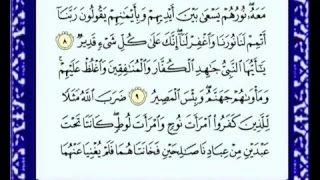 مَعَهُۥ نُورُهُمْ يَسْعَىٰ بَيْنَ أَيْدِيهِمْ وَبِأَيْمَٰنِهِمْ يَقُولُونَ رَبَّنَآ
أَتْمِمْ لَنَا نُورَنَا وَٱغْفِرْ لَنَآ إِنَّكَ عَلَىٰ كُلِّ شَىْءٍ قَدِيرٌ ٨
يَٰٓأَيُّهَا ٱلنَّبِىُّ جَٰهِدِ ٱلْكُفَّارَ وَٱلْمُنَٰفِقِينَ وَٱغْلُظْ عَلَيْهِمْ
وَمَأْوَىٰهُمْ جَهَنَّمُ وَبِئْسَ ٱلْمَصِيرُ ٩ ضَرَبَ ٱللَّهُ مَثَلًا
لِّلَّذِينَ كَفَرُوا۟ ٱمْرَأَتَ نُوحٍ وَٱمْرَأَتَ لُوطٍ كَانَتَا تَحْتَ
عَبْدَيْنِ مِنْ عِبَادِنَا صَٰلِحَيْنِ فَخَانَتَاهُمَا فَلَمْ يُغْنِيَا عَنْهُمَا